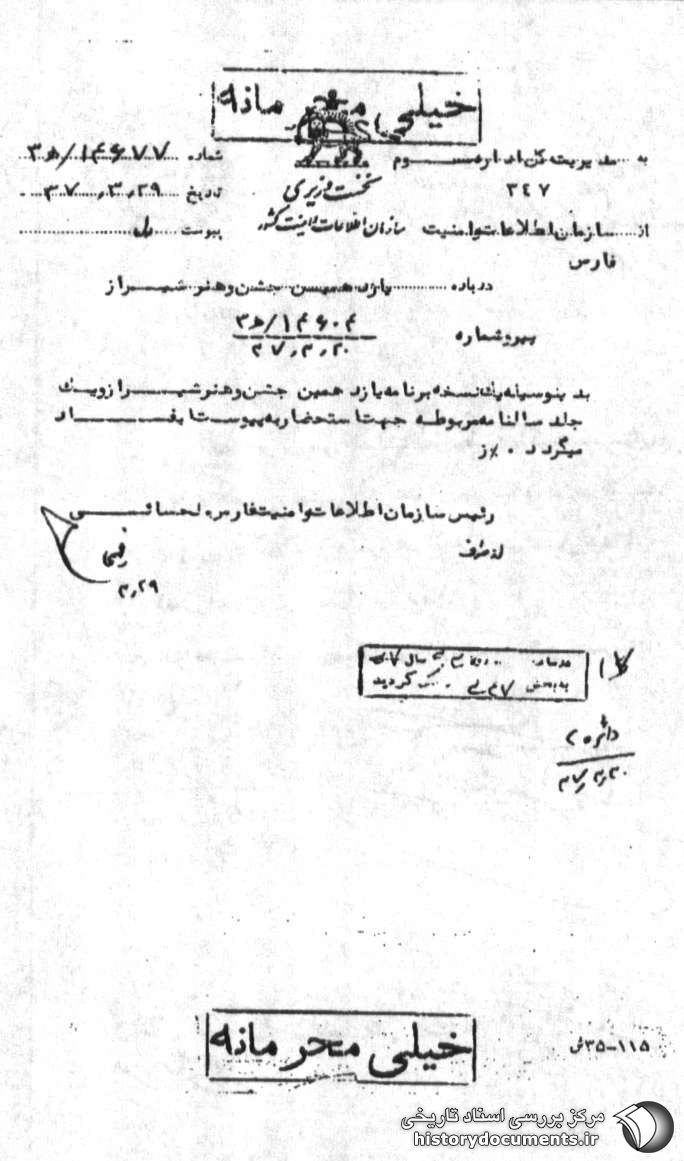 خیلی محرمانه
به ..... مدیریت کل اداره سوم
۳۴۷
نخست وزیری
سازمان اطلاعات و امنیت کشور
شماره ۱۴۶۷۷/۳ھ
تاریخ ۳۷,۳,۲۹
پیوست
از ..... سازمان اطلاعات و امنیت
فارس
درباره یازدهمین جشن و هنر شیراز
پیرو شماره
۱۴۶۰۴/۳ھ
۳۷,۳,۲۰
بدینوسیله یک نسخه برنامه یازدهمین جشن و هنر شیراز و یک
جلد سالنامه مربوطه جهت استحضار به پیوست ایفاد
میگردد ۰٪ز
رئیس سازمان اطلاعات و امنیت فارس. لحسائی
از طرف
۳,۲۹
کردید
دائره ۲
۳۷,۳,۳۰
خیلی محرمانه
۱۱۵-۳۵ش
مرکز بررسی اسناد تاریخی
historydocuments.ir